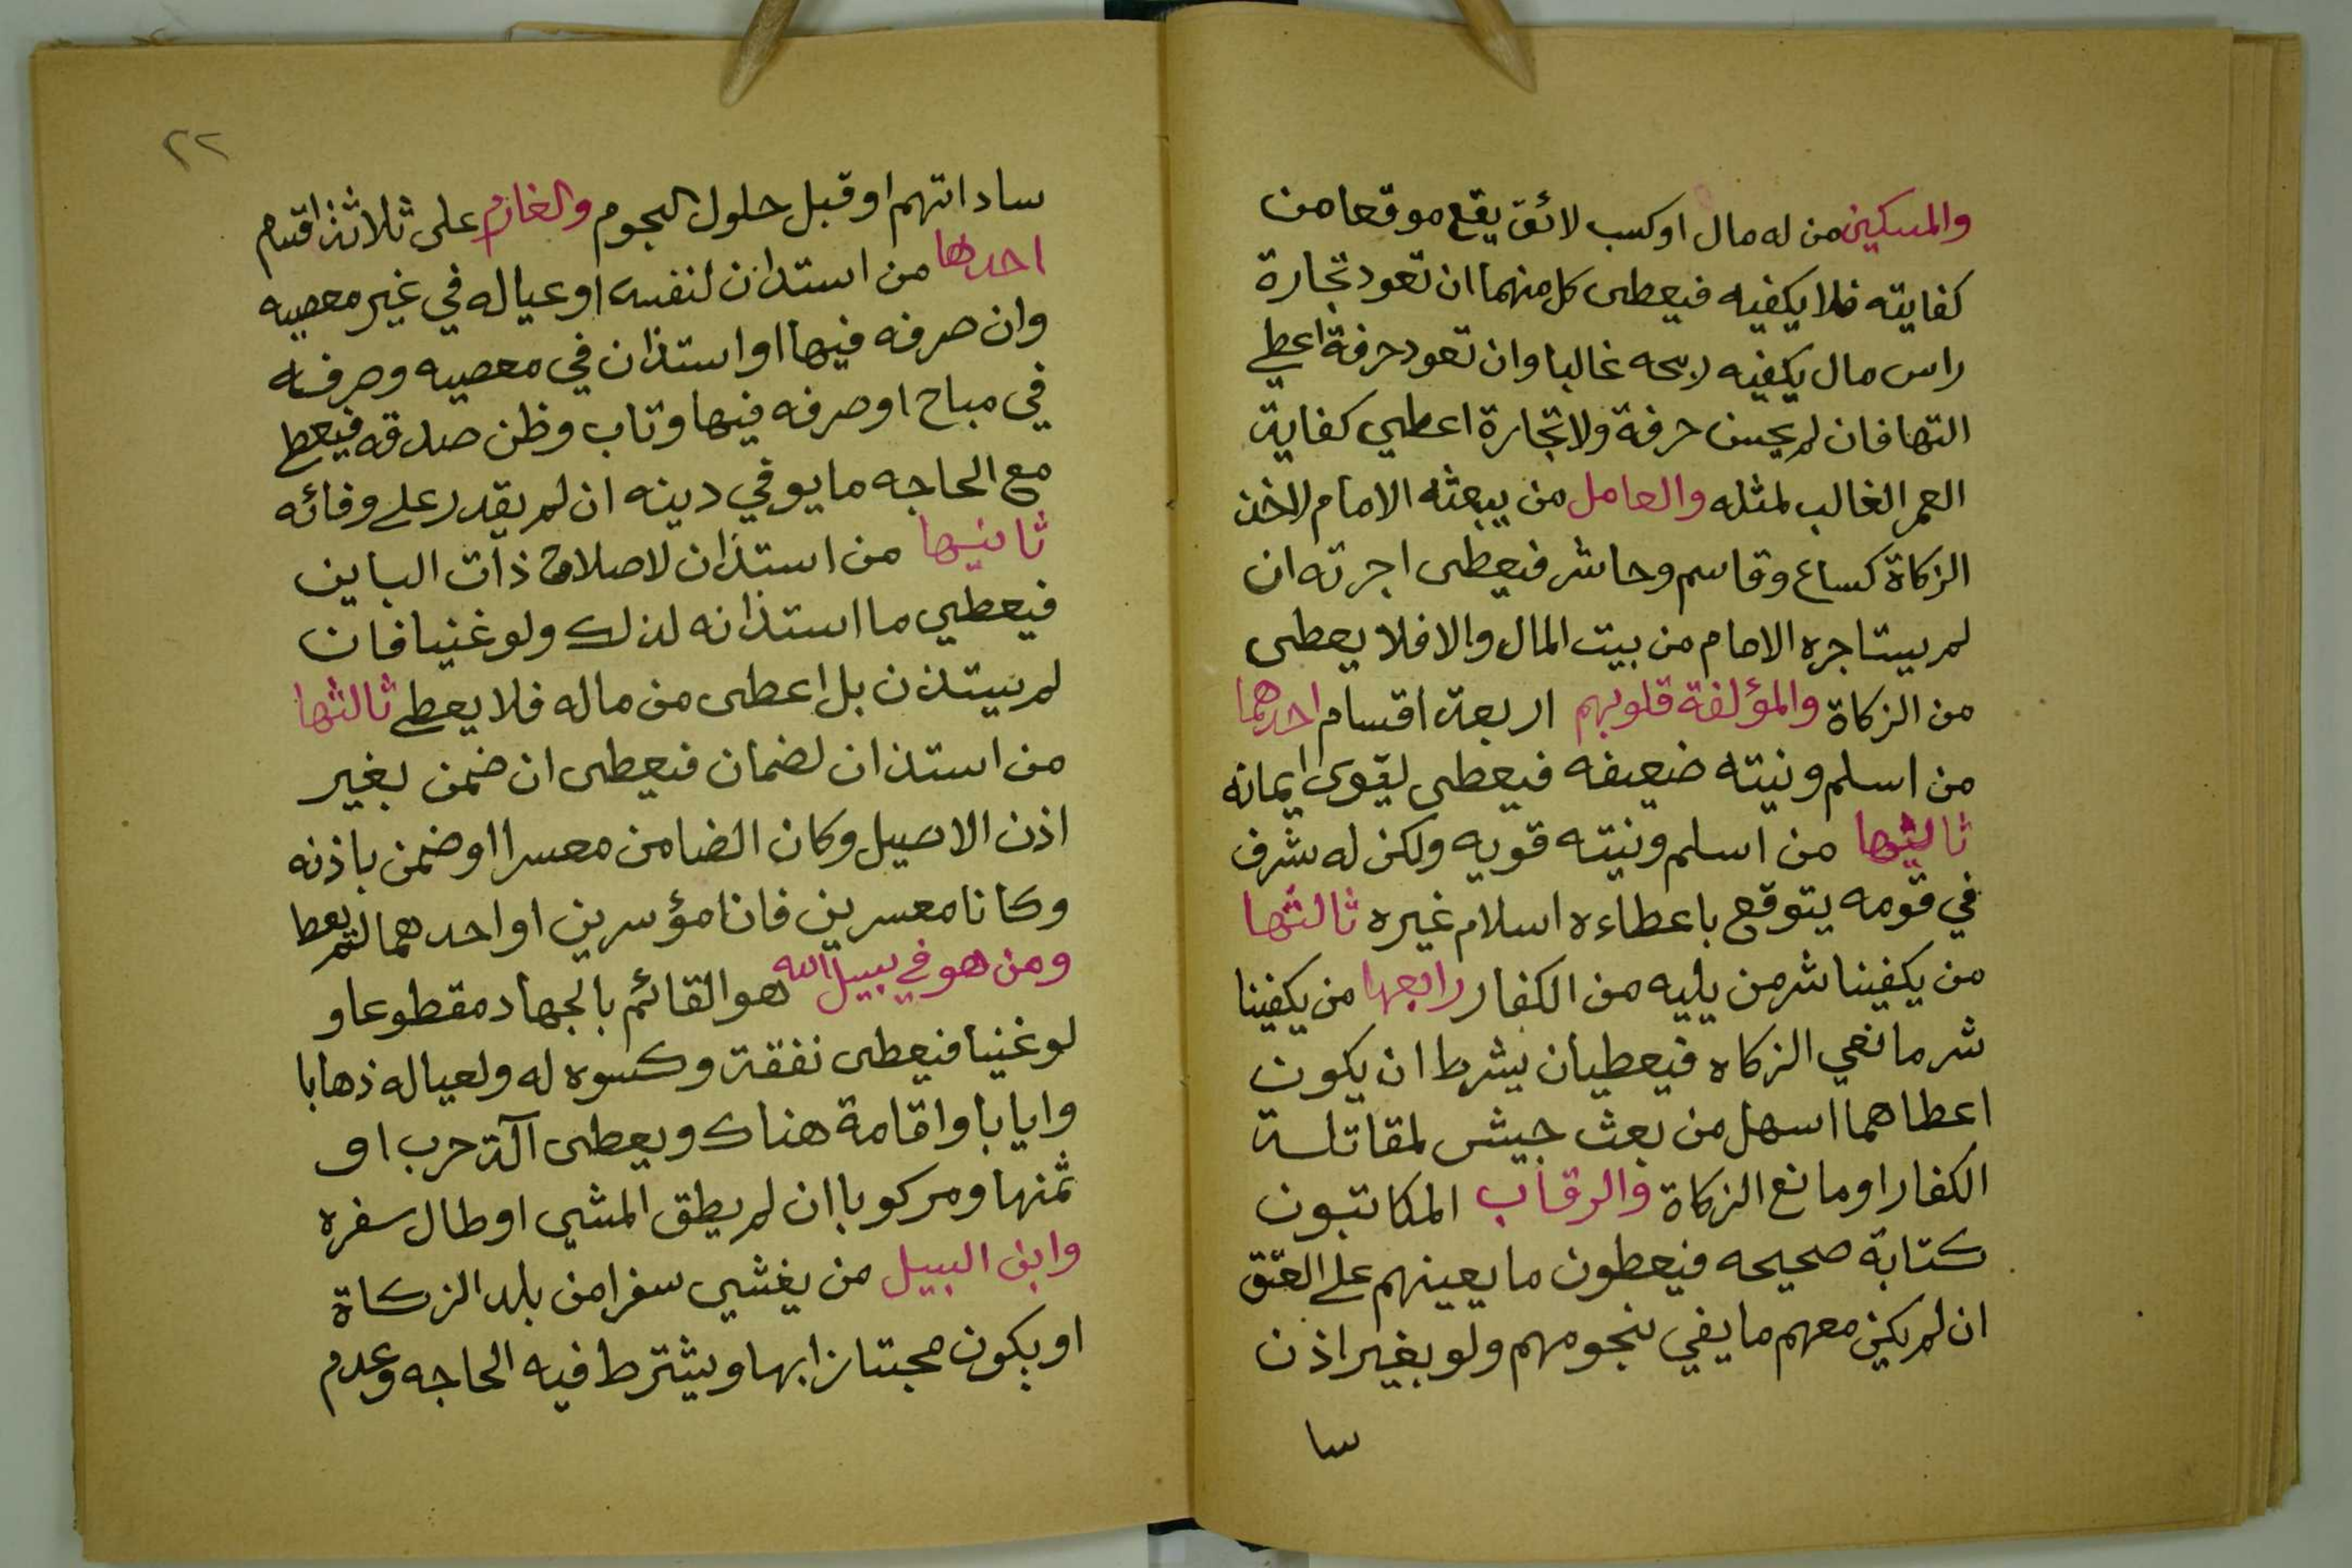 والمسكين من له مال او كسب لائق يقع موقعا من
كفايته فلا يكفيه فيعطى كل منهما ان تعود تجارة
راس مال يكفيه ربحه غالبا وان تعود حرفة اعطي
التها فان لم يحسن حرفة ولا تجارة اعطي كفاية
العمر الغالب لمثله والعامل من يبعثه الامام لاخذ
الزكاة كساع وقاسم وحاشر فيعطى اجرته ان
لم يستاجره الامام من بيت المال والا فلا يعطى
من الزكاة والمؤلفة قلوبهم اربعة اقسام احدهما
من اسلم ونيته ضعيفه فيعطى ليقوى ايمانه
ثاليثها من اسلم ونيته قويه ولكن له شرف
في قومه يتوقع باعطاءه اسلام غيره ثالثها
من يكفينا شر من يليه من الكفار رابعها من يكفينا
شر مانعي الزكاه فيعطيان بشرط ان يكون
اعطاهما اسهل من بعث جيش لمقاتلة
الكفار او مانع الزكاة والرقاب المكاتبون
كتابة صحيحه فيعطون ما يعينهم على العتق
ان لم يكن معهم ما يفي بنجومهم ولو بغير اذن
سا
٢٢
ساداتهم او قبل حلول النجوم والغارم على ثلاثة اقسام
احدها من استدان لنفسه او عياله في غير معصيه
وان صرفه فيها او استذان في معصيه وصرفه
في مباح او صرفه فيها وتاب وظن صدقه فيعط
مع الحاجه ما يوفي دينه ان لم يقدر على وفائه
ثانيها من استذان لاصلاح ذات الباين
فيعطي ما استذانه لذلك ولو غنيا فان
لم يستذن بل اعطى من ماله فلا يعطى ثالثها
من استذان لضمان فيعطى ان ضمن بغير
اذن الاصيل وكان الضامن معسرا او ضمن باذنه
وكانا معسرين فانا مؤسرين او احدهما لم يعط
ومن هو في سبيل الله هو القائم بالجهاد مقطوعا و
لو غنيا فيعطى نفقة وكسوه له ولعياله ذهابا
وايابا واقامة هناك ويعطى آلة حرب او
ثمنها ومركوبا ان لم يطق المشي او طال سفره
وابن السبيل من يغشي سفرا من بلد الزكاة
او يكون مجتازا بها ويشترط فيه الحاجه وعدم